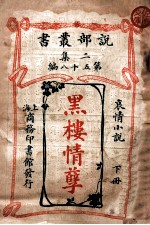 說部叢書
二集
第五十八編
哀情小說
下冊
黑樓情孽
上海商務印書館發行